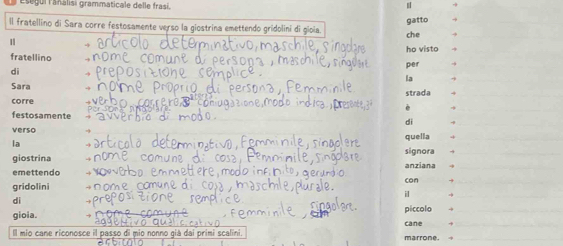 Esegui l'analisi grammaticale delle frasi.
Il fratellino di Sara corre festosamente verso la giostrina emettendo gridolini di gioia.
Il → articolo determinativo, maschile, singolare
fratellino → nome comune di persona, maschile, singolare
di → preposizione semplice.
Sara → nome proprio di persona, femminile
corre → verbo correre, 2ª coniugazione, modo indica., presente, 3ª persona singolare
festosamente → avverbio di modo.
verso →
la → articolo determinativo, femminile, singolare
giostrina → nome comune di cosa, femminile, singolare
emettendo → verbo emmettere, modo infinito, gerundio
gridolini → nome comune di cosa, maschile, plurale.
di → preposizione semplice
gioia. → nome comune, femminile, singolare.
aggettivo qualificativo
Il mio cane riconosce il passo di mio nonno già dai primi scalini.
articolo
Il →
gatto →
che →
ho visto →
per →
la →
strada →
è →
di →
quella →
signora →
anziana →
con →
il →
piccolo →
cane →
marrone. →